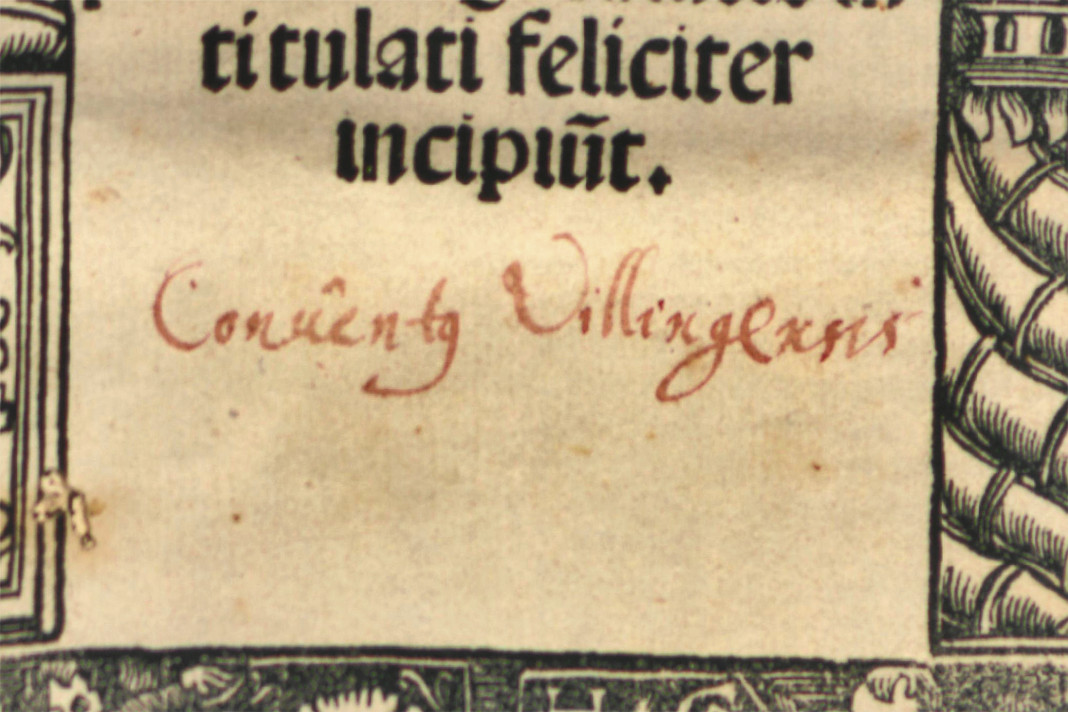 titulati feliciter
incipiūt.
Conuentꝯ Villingensis